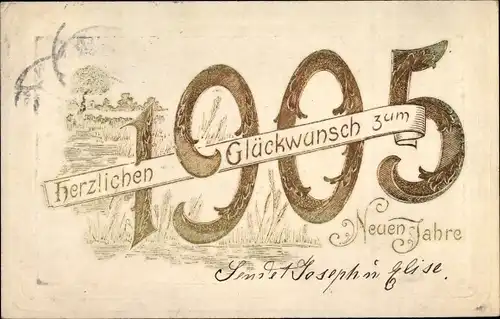 1905
Herzlichen Glückwunsch zum
Neuen Jahre
Sendet Joseph u Elise.